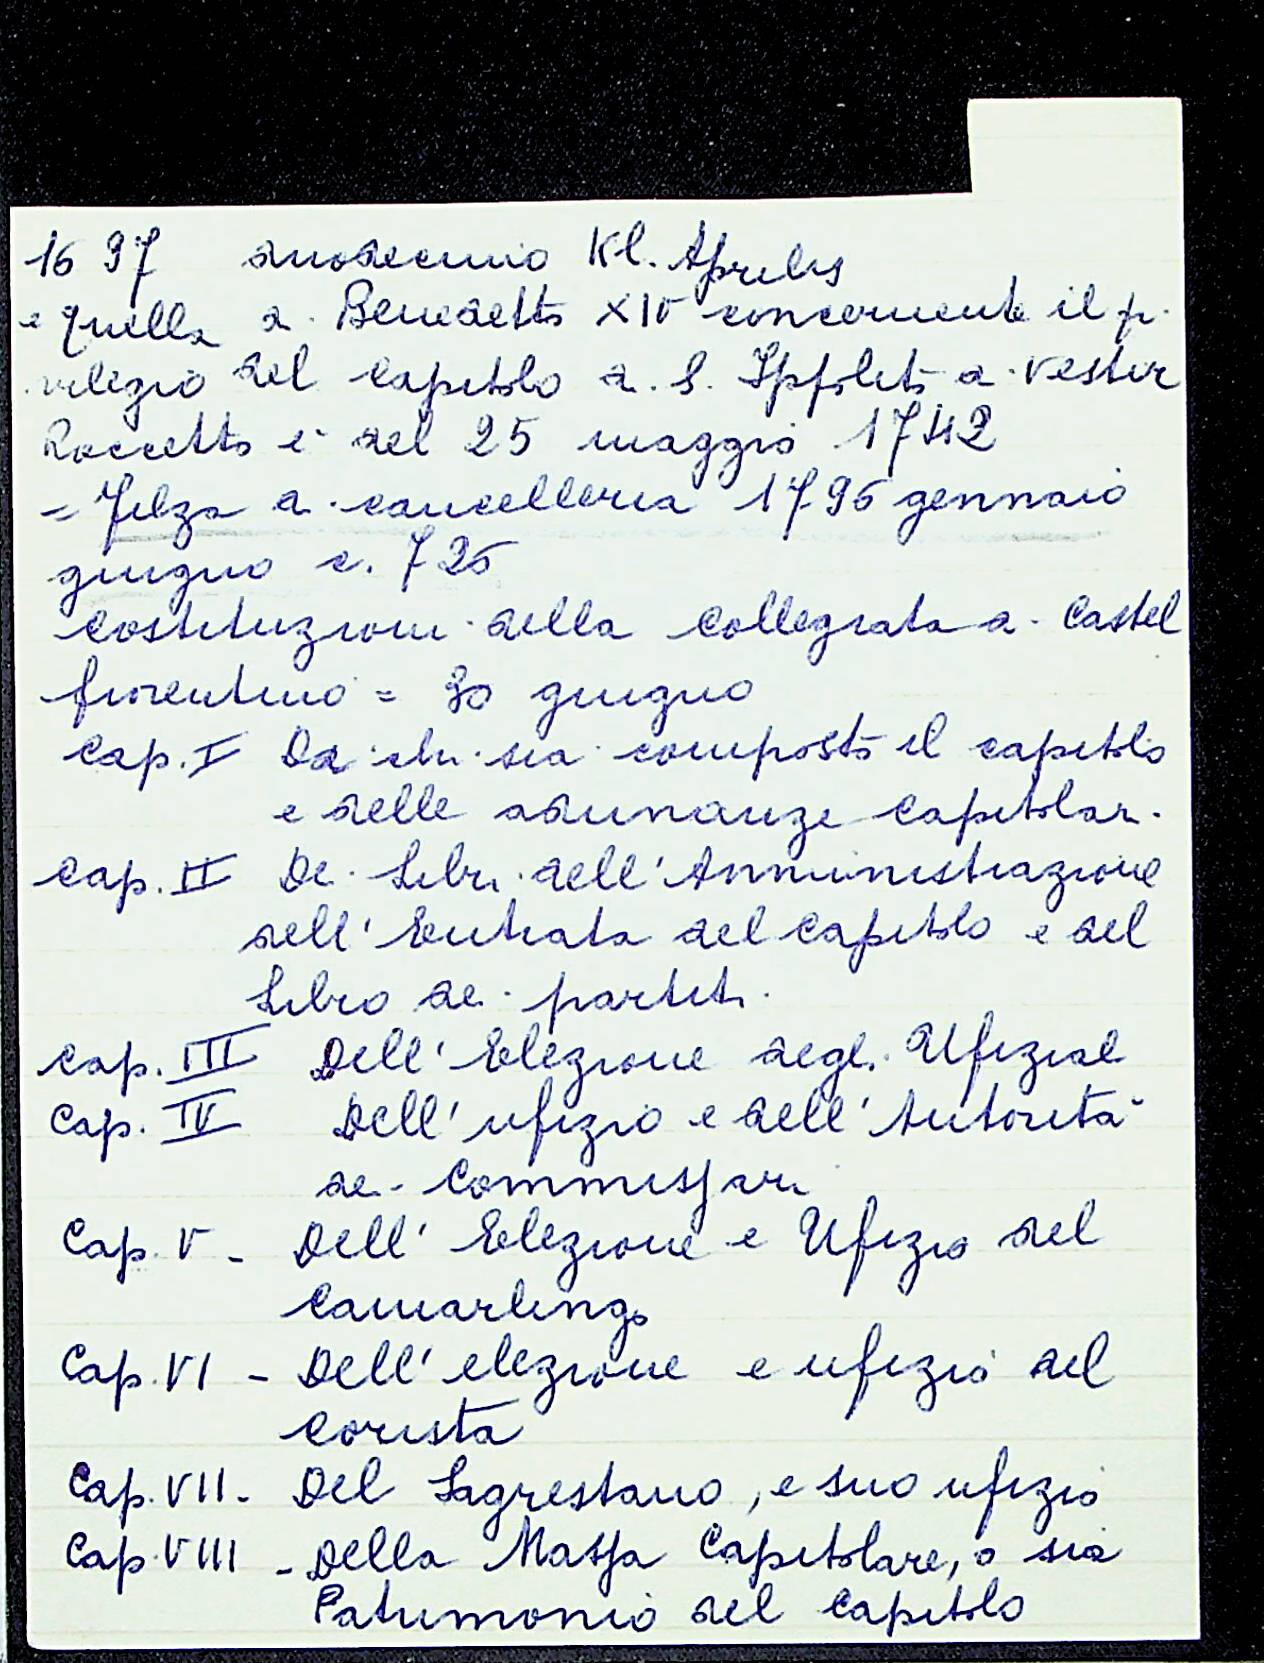 1697 duodecimo Kl. Aprilis
e quella di Benedetto XIV concernente il pri
vilegio del Capitolo di S. Ippolito di vestir
Roccetto è del 25 maggio 1742
= Filza di cancelleria 1795 gennaio
giugno c. 725
Costituzioni della Collegiata di Castel
fiorentino = 30 giugno
Cap. I Da chi sia composto il capitolo
e delle adunanze Capitolari.
Cap. II Dei Libri dell'Amministrazione
dell'Entrata del Capitolo e del
Libro dei partiti.
Cap. III Dell'Elezione degli Ufizial
Cap. IV Dell'ufizio e dell'Autorità
dei Commissari
Cap. V - Dell'Elezione e Ufizio del
Camarlingo
Cap. VI - Dell'elezione e ufizio del
Corista
Cap. VII - Del Sagrestano, e suo ufizio
Cap. VIII - Della Massa Capitolare, o sia
Patrimonio del Capitolo